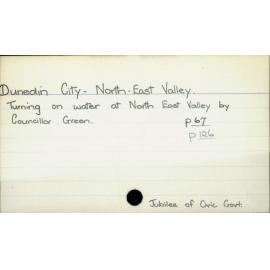 Dunedin City - North-East Valley.
Turning on water at North East Valley by
Councillor Green. p 67
p 126
Jubilee of Civic Govt.